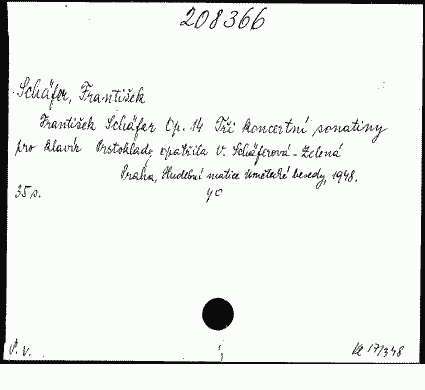 208366
Schäfer, František
František Schäfer Op. 14 Tři koncertní sonatiny
pro klavír Prstoklady opatřila V. Schäferová-Zelená
Praha, Hudební matice Umělecké besedy, 1948.
35 s. 4°
P. V.
17/348